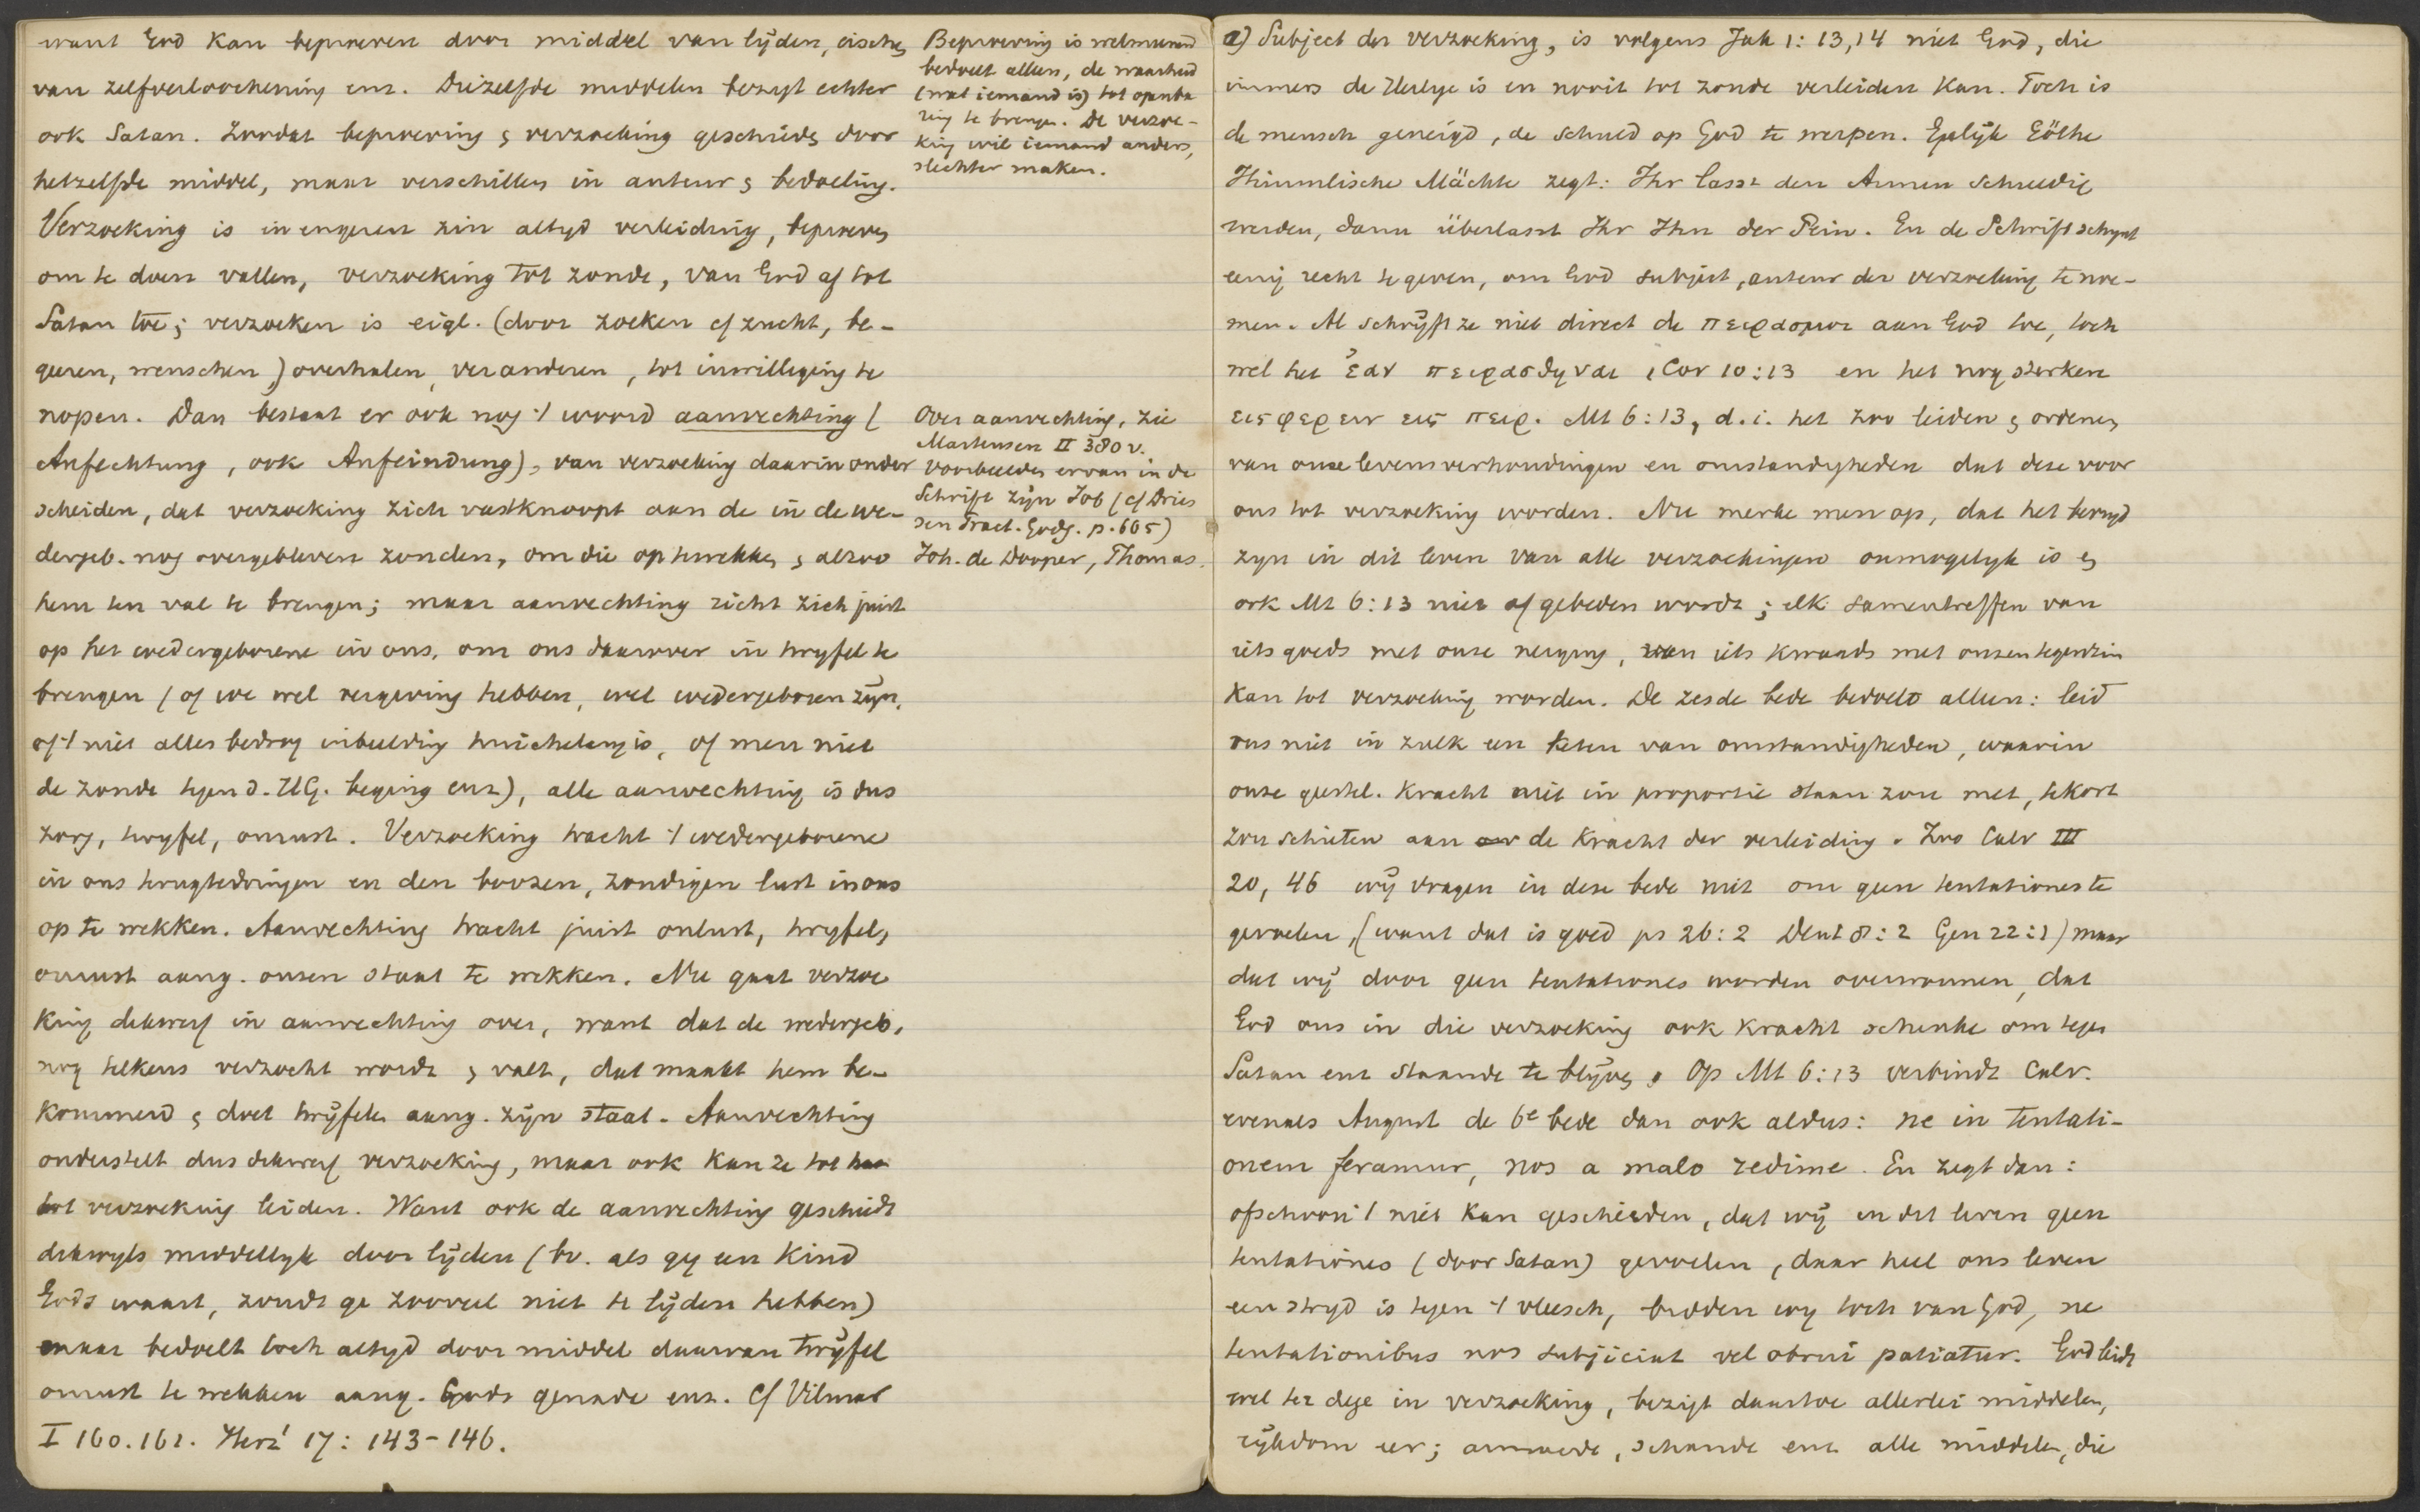 want God kan beproeven door middel van lijden, eischen
van zelfverloochening enz. Diezelfde middelen bezigt echter
ook Satan. Zoodat beproeving & verzoeking geschieden door
hetzelfde middel, maar verschillen in auteur & bedoeling.
Verzoeking is in engeren zin altyd verleiding, beproeven
om te doen vallen, verzoeking tot zonde, van God af tot
Satan toe; verzoeken is eigl. (door zoeken cf zucht, be-
geeren, wenschen) overhalen, veranderen, tot inwilliging te
nopen. Dan bestaat er ook nog 't woord aanvechting (
Anfechtung, ook Anfeindung), van verzoeking daarin onder
scheiden, dat verzoeking zich vastknoopt aan de in de we-
dergeb. nog overgebleven zonden, om die op te wekken & alzoo
hem ten val te brengen; maar aanvechting richt zich juist
op het wedergeborene in ons, om ons daarover in twyfel te
brengen (of we wel vergeving hebben, wel wedergeboren zijn,
of 't niet alles bedrog inbeelding huichelary is, of men niet
de zonde tegen d. HG. beging enz), alle aanvechting is dus
zorg, twyfel, onrust. Verzoeking tracht 't wedergeborene
in ons terugtedringen en den boozen, zondigen lust in ons
op te wekken. Aanvechting tracht juist onlust, twyfel,
onrust aang. onzen staat te wekken. Nu gaat verzoe
king dikwerf in aanvechting over, want dat de wedergeb.
nog telkens verzocht wordt & valt, dat maakt hem be-
kommerd & doet twijfelen aang. zijn staat. Aanvechting
onderstelt dus dikwerf verzoeking, maar ook kan ze tot
tot verzoeking leiden. Want ook de aanvechting geschiedt
dikwyls middellyk door lijden (bv. als gy een kind
Gods waart, zoudt ge zooveel niet te lijden hebben)
maar bedoelt toch altyd door middel daarvan twijfel
onrust te wekken aang. Gods genade enz. Cf Vilmar
I 160.161. Herz² 17: 143-146.
Beproeving is welmeenend
bedoelt alleen, de waarheid
(wat iemand is) tot openba
ring te brengen. De verzoe-
king wil iemand anders,
slechter maken.
Over aanvechting, zie
Martensen II 380 v.
voorbeelden ervan in de
Schrift zijn Job (cf Dries
sen Pract. Godg. p. 605)
Joh. de Dooper, Thomas.
a) Subject der verzoeking, is volgens Jak 1:13,14 niet God, die
immers de Heilige is en nooit tot zonde verleiden kan. Toch is
de mensch geneigd, de schuld op God te werpen. Gelijk Göthe
Himmlische Mächte zegt: Ihr lasst den Armen schuldig
werden, dann überlasst Ihr Ihn der Pein. En de Schrift schynt
eenig recht te geven, om God subject, auteur der verzoeking te noe-
men. Al schrijft ze niet direct de πειρασμος aan God toe, toch
wel het ἐαν πειρασθηναι 1 Cor 10:13 en het nog sterkere
εισφερειν εις πειρ. Mt 6:13, d.i. het zoo leiden & ordenen
van onze levensverhoudingen en omstandigheden dat deze voor
ons tot verzoeking worden. Nu merke men op, dat het bevryd
zyn in dit leven van alle verzoekingen onmogelyk is &
ook Mt 6:13 niet afgebeden wordt; elk samentreffen van
iets goeds met onze neiging, van iets kwaads met onzen tegenzin
kan tot verzoeking worden. De zesde bede bedoelt alleen: leid
ons niet in zulk een keten van omstandigheden, waarin
onze geestel. kracht niet in proportie staan zou met, tekort
zou schieten aan de kracht der verleiding. Zoo Calv III
20, 46 wij vragen in deze bede niet om geen tentationes te
gevoelen, (want dat is goed ps 26:2 Deut 8:2 Gen 22:1) maar
dat wij door geen tentationes worden overwonnen, dat
God ons in die verzoeking ook kracht schenke om tegen
Satan enz staande te blijven. Op Mt 6:13 verbindt Calv.
evenals August de 6e bede dan ook aldus: ne in tentati-
onem feramur, nos a malo redime. En zegt dan:
ofschoon 't niet kan geschieden, dat wij in dit leven geen
tentationes (door Satan) gevoelen, daar heel ons leven
een stryd is tegen 't vleesch, bidden wy toch van God, ne
tentationibus nos subjiciat vel obrui patiatur. God leidt
wel ter dege in verzoeking, bezigt daartoe allerlei middelen,
rijkdom eer; armoede, schande enz alle middelen, die